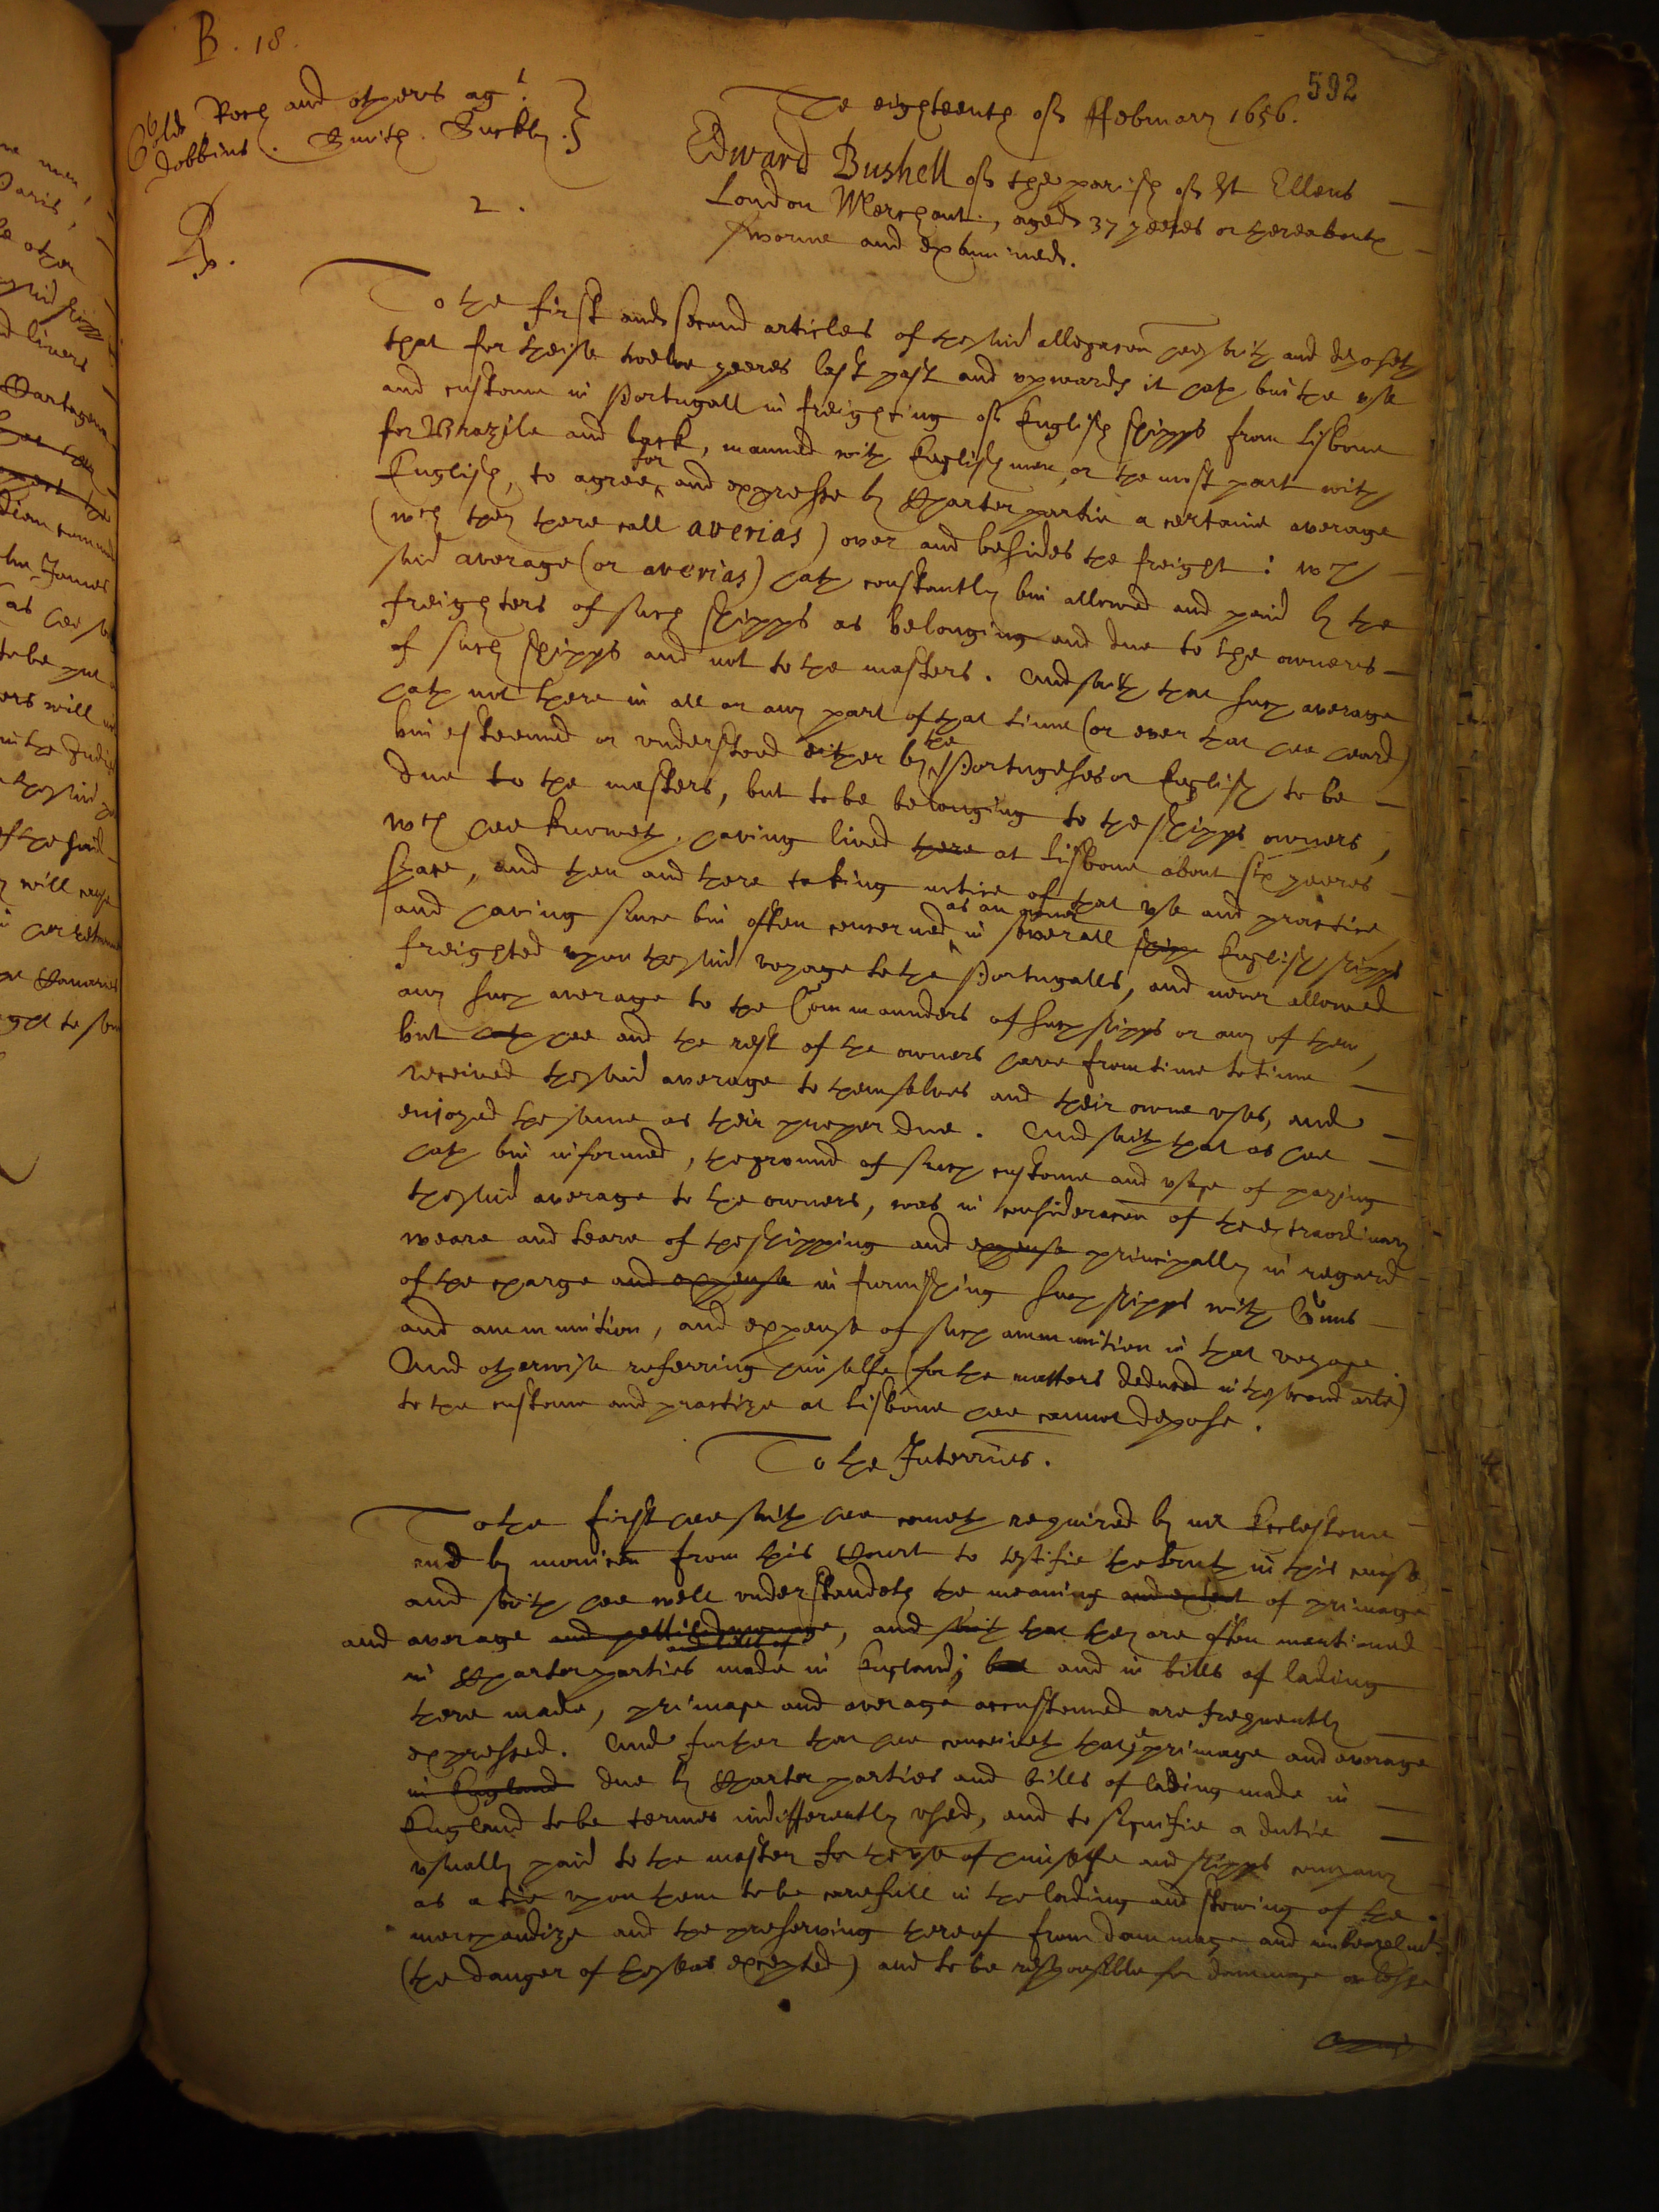 B. 18.
592
The eighteenth of ffebruary 1656.
Rock and others agt
Dobbins. Smith. Suckley.
2.
Rp.
Edward Bushell of the parish of St Ellens
London Merchant, aged 37 yeeres or thereabouts
sworne and examined.
To the first and second articles of the said allegacon hee saith and deposeth
that for theise twelve yeeres last past and upwards it hath bin the use
and custome in Portugall in freighting of English shipps from Lisbone
for Brazile and back, manned with Englishmen or the most part with
English, to agree for and expresse by Charter partie a certaine average
(wch they there call averias) over and besides the freight: wch
said average (or averias) hath constantly bin allowed and paid by the
freighters of such shipps as belonging and due to the owners
of such shipps and not to the masters. And saith that such average
hath not there in all or any part of that time (or ever that hee heard)
bin esteemed or understood either by the Portugeses or English to be
due to the masters, but to be belonging to the shipps owners,
wch hee knoweth, having lived there at Lisbone about six yeeres
space, and then and there taking notice of that use and practice,
and having since bin often concerned as an owner in severall shipp English shipps
freighted upon the said voyage to the Portugalls, and never allowed
any such average to the Commaunders of such shipps or any of them,
but hath hee and the rest of the owners have from time to time
received the said average to themselves and their owne uses, and
enjoyed the same as their proper due. And saith that as hee
hath bin informed, the ground of such custome and usage of paying
the said average to the owners, was in consideracon of the extraordinary
weare and teare of the shipping and expense principally in regard
of the charge and expense in furnishing such shipps with Guns
and ammunition, and expense of such ammunition in that voyage.
And otherwise referring himselfe (for the matters deduced in the second arle)
to the custome and practize at Lisbone hee cannot depose.
To the Interries.
To the first hee saith hee cometh required by mr Ecclestone
and by monicon from this Court to testifie the truth in this cause,
and saith hee well understandeth the meaning and extent of primage
and average and pettie average, and saith that they are often mentioned
in Charter parties and bills of made in England; but and in bills of lading
there made, primage and average accustomed are frequently
expressed. And further that hee conceiveth that the primage and average
in England due by Charter parties and bills of lading made in
England to be termes indifferently used, and to signifie a dutie
usually paid to the master for the use of himselfe and shipps company
as a tie upon them to be carefull in the lading and stowing of the
merchandize and the preserving thereof from dammage and
(the danger of the seas excepted) and to be responsible for dammage or losse